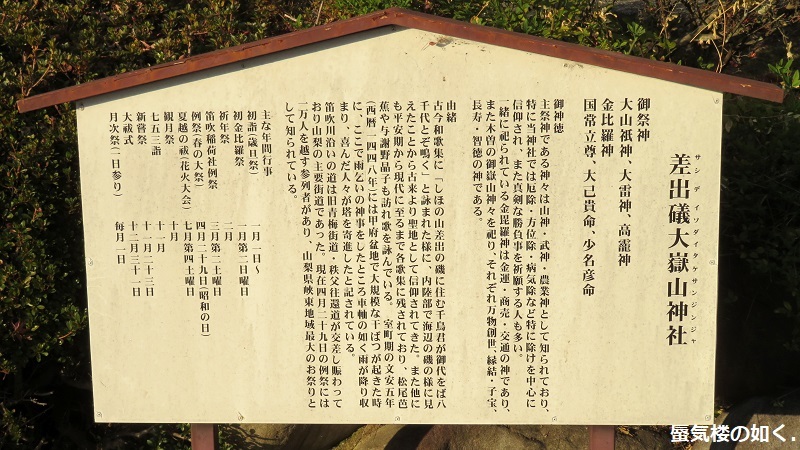 サシデイソダイタケサンジンジャ
差出磯大嶽山神社
御祭神
大山祇神、大雷神、高龗神
金比羅神
国常立尊、大己貴命、少名彦命
御神徳
主祭神である神々は山神・武神・農業神として知られており、
特に当神社では厄除・方位除・病気除など特に除けを中心に
信仰され、また真剣な勝負事を祈願する人も多い。
一緒に祀られている金毘羅神は金運・商売・交通の神であり、
また木曽の御嶽山神々を祀り、それぞれ万物創世、縁結・子宝、
長寿・智徳の神である。
由緒
古今和歌集に「しほの山差出の磯に住む千鳥君が御代をば八
千代とぞ鳴く」と詠まれた様に、内陸部で海辺の磯の様に見
えたことから古来より聖地として信仰されてきた。また他に
も平安期から現代に至るまで各歌集に残されており、松尾芭
蕉や与謝野晶子も訪れ歌を詠んでいる。 室町期の文安五年
(西暦一四四八年)には甲府盆地で大規模な干ばつが起きた時
に、ここで雨乞いの神事をしたところ車軸の如く雨が降り収
まり、喜んだ人々が塔を寄進したと記されている。
笛吹川沿いの道は旧青梅街道・秩父往還道が交差し賑わって
おり山梨の主要街道であった。現在四月二十九日の例祭には
二万人を越す参列者があり、山梨県峡東地域最大のお祭りと
して知られている。
主な年間行事
初詣(歳旦祭) 一月一日〜
初金比羅祭 一月第二日曜日
祈年祭 二月
笛吹稲荷社例祭 三月第二土曜日
例祭(春の大祭) 四月二十九日(昭和の日)
夏越の祓(花火大会) 七月第四土曜日
観月祭 十月
七五三詣 十一月
新嘗祭 十一月二十三日
大祓式 十二月三十一日
月次祭(一日参り) 毎月一日
蜃気楼の如く.